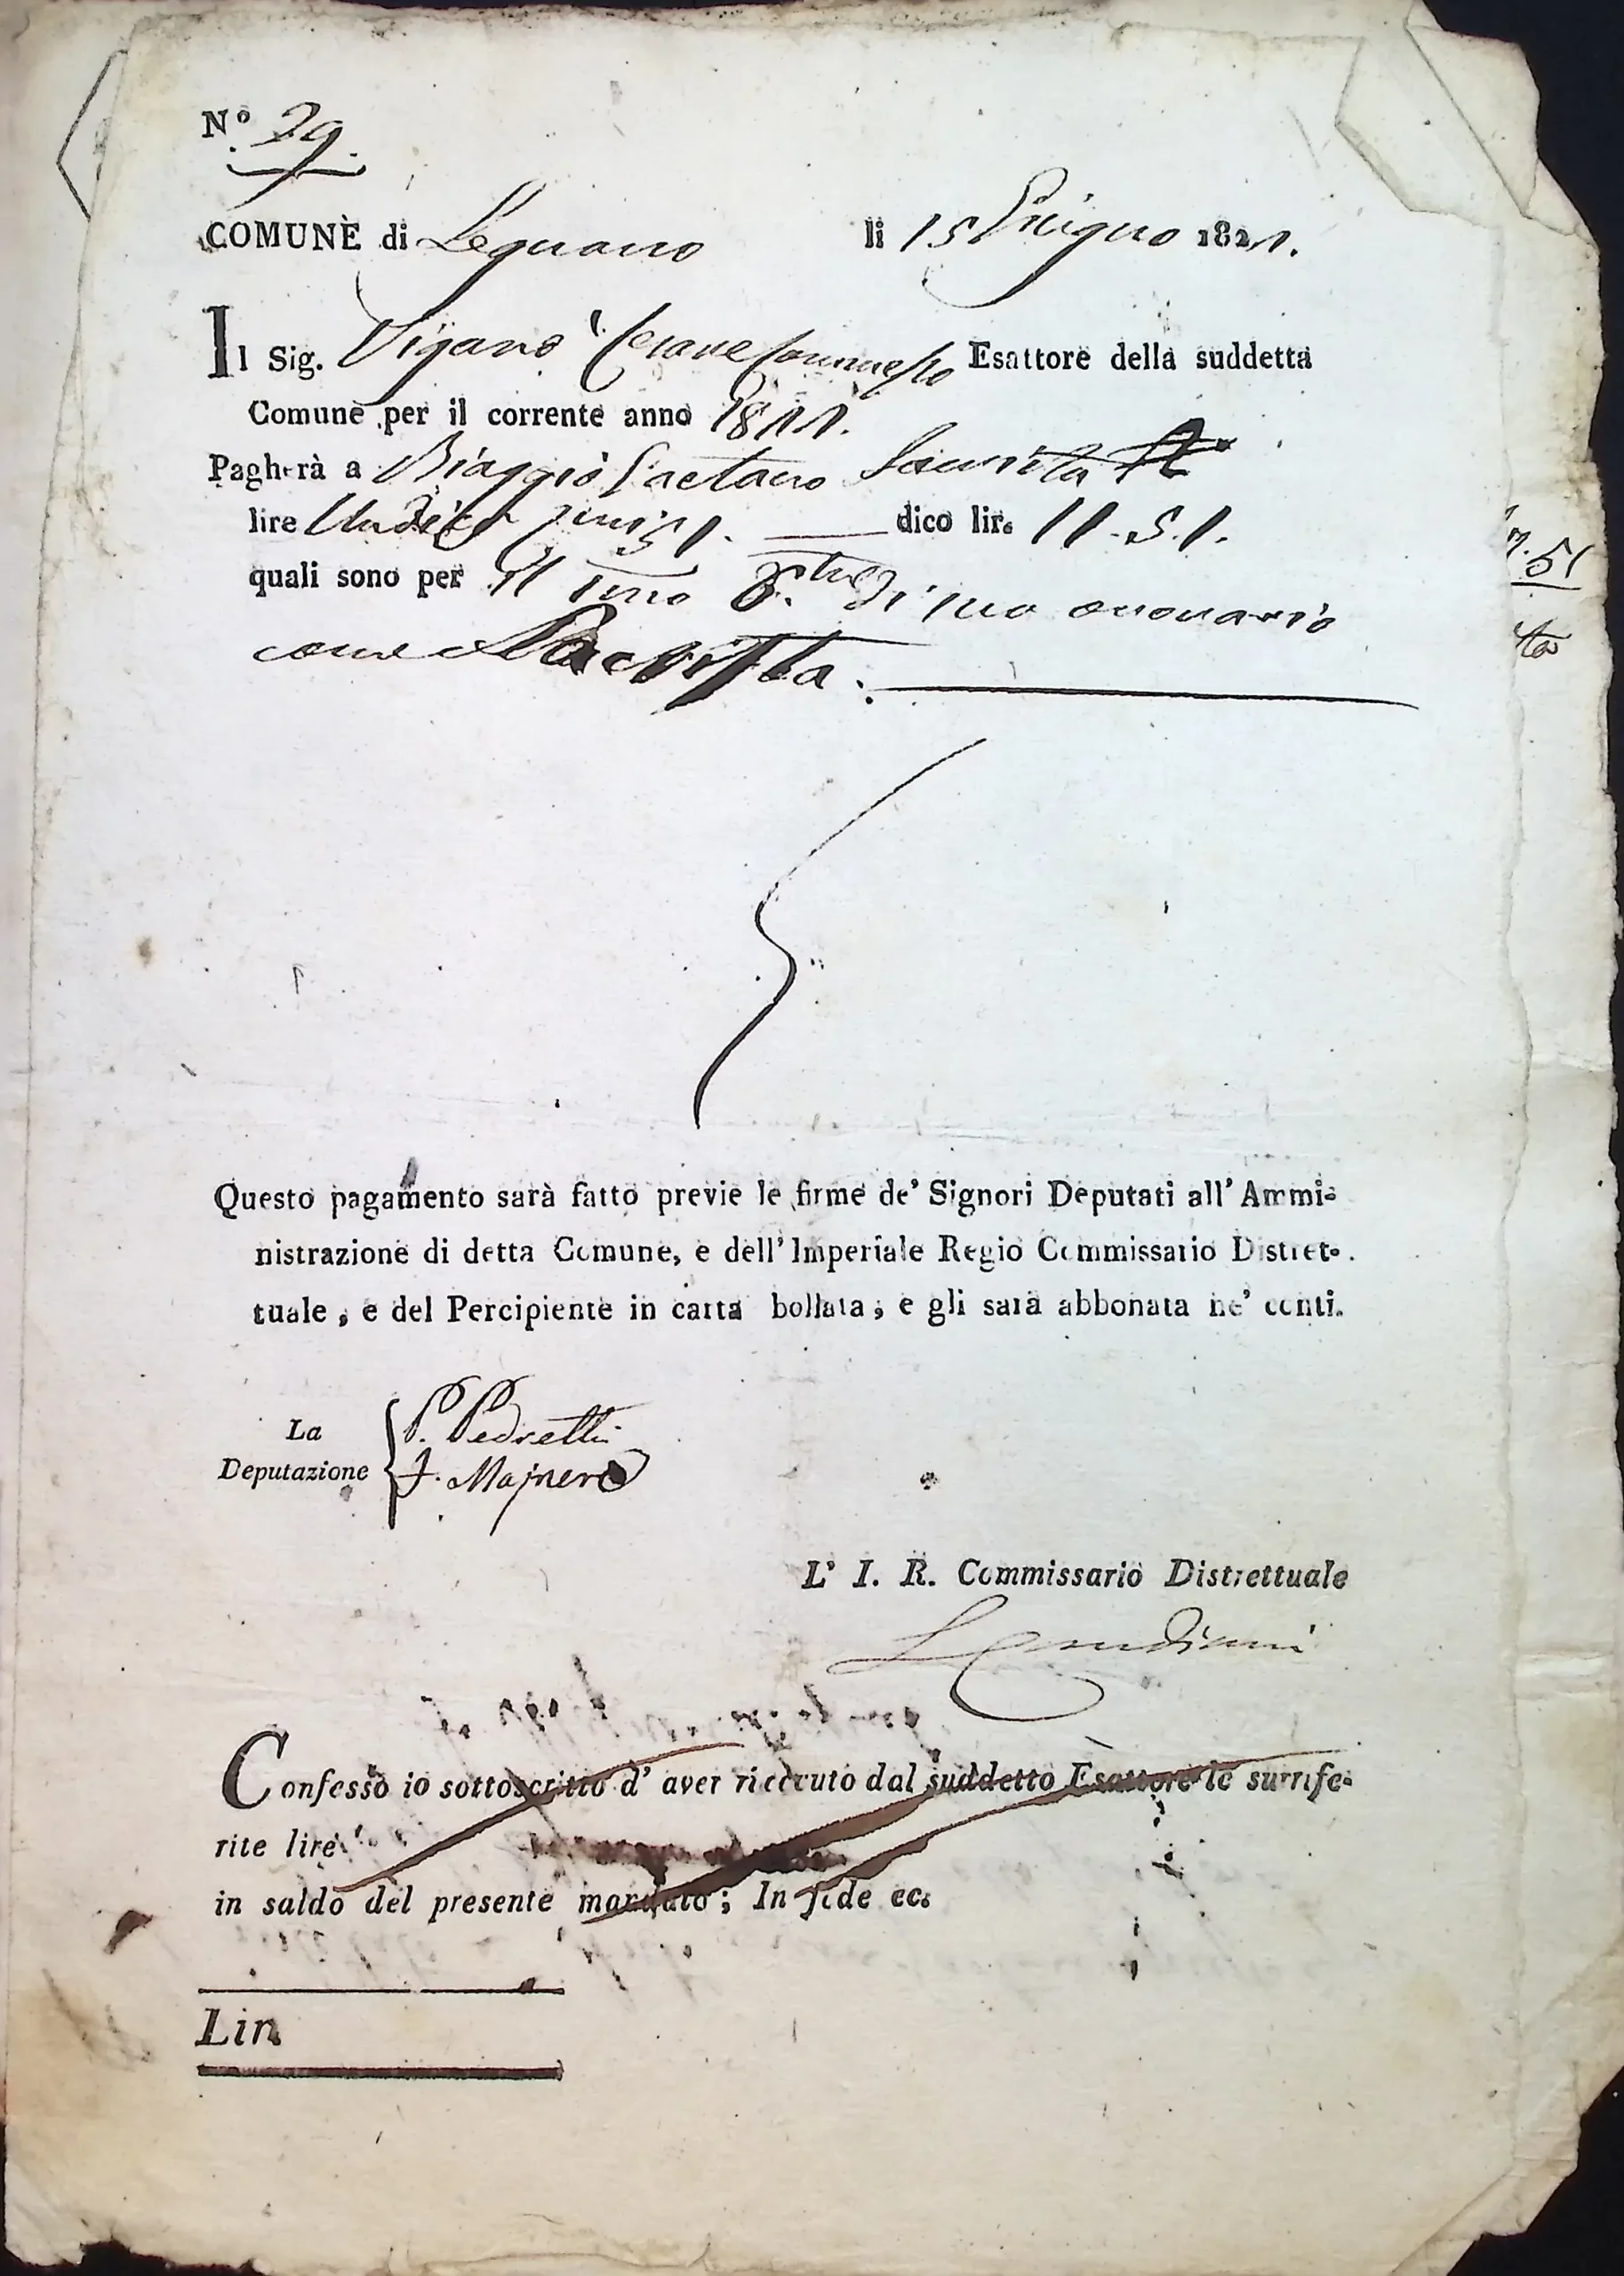 N.º 29.
COMUNE di Legnano li 15 Giugno 1821.
Il Sig. Viganò Esattore della suddetta
Comune per il corrente anno 1821.
Pagherà a Biaggio Gaetano
lire Undici 51. dico lir. 11.51.
quali sono per il imo di suo onorario
come
n.51
Questo pagamento sarà fatto previe le firme de' Signori Deputati all' Ammi-
nistrazione di detta Comune, e dell' Imperiale Regio Commissario Distret-
tuale, e del Percipiente in carta bollata; e gli sarà abbonata ne' conti.
La
Deputazione
P. Pedretti
F. Majnero
L' I. R. Commissario Distrettuale
Confesso io sottoscritto d' aver ricevuto dal suddetto Esattore le surrife-
rite lire
in saldo del presente mandato; In fede ec.
Lir.